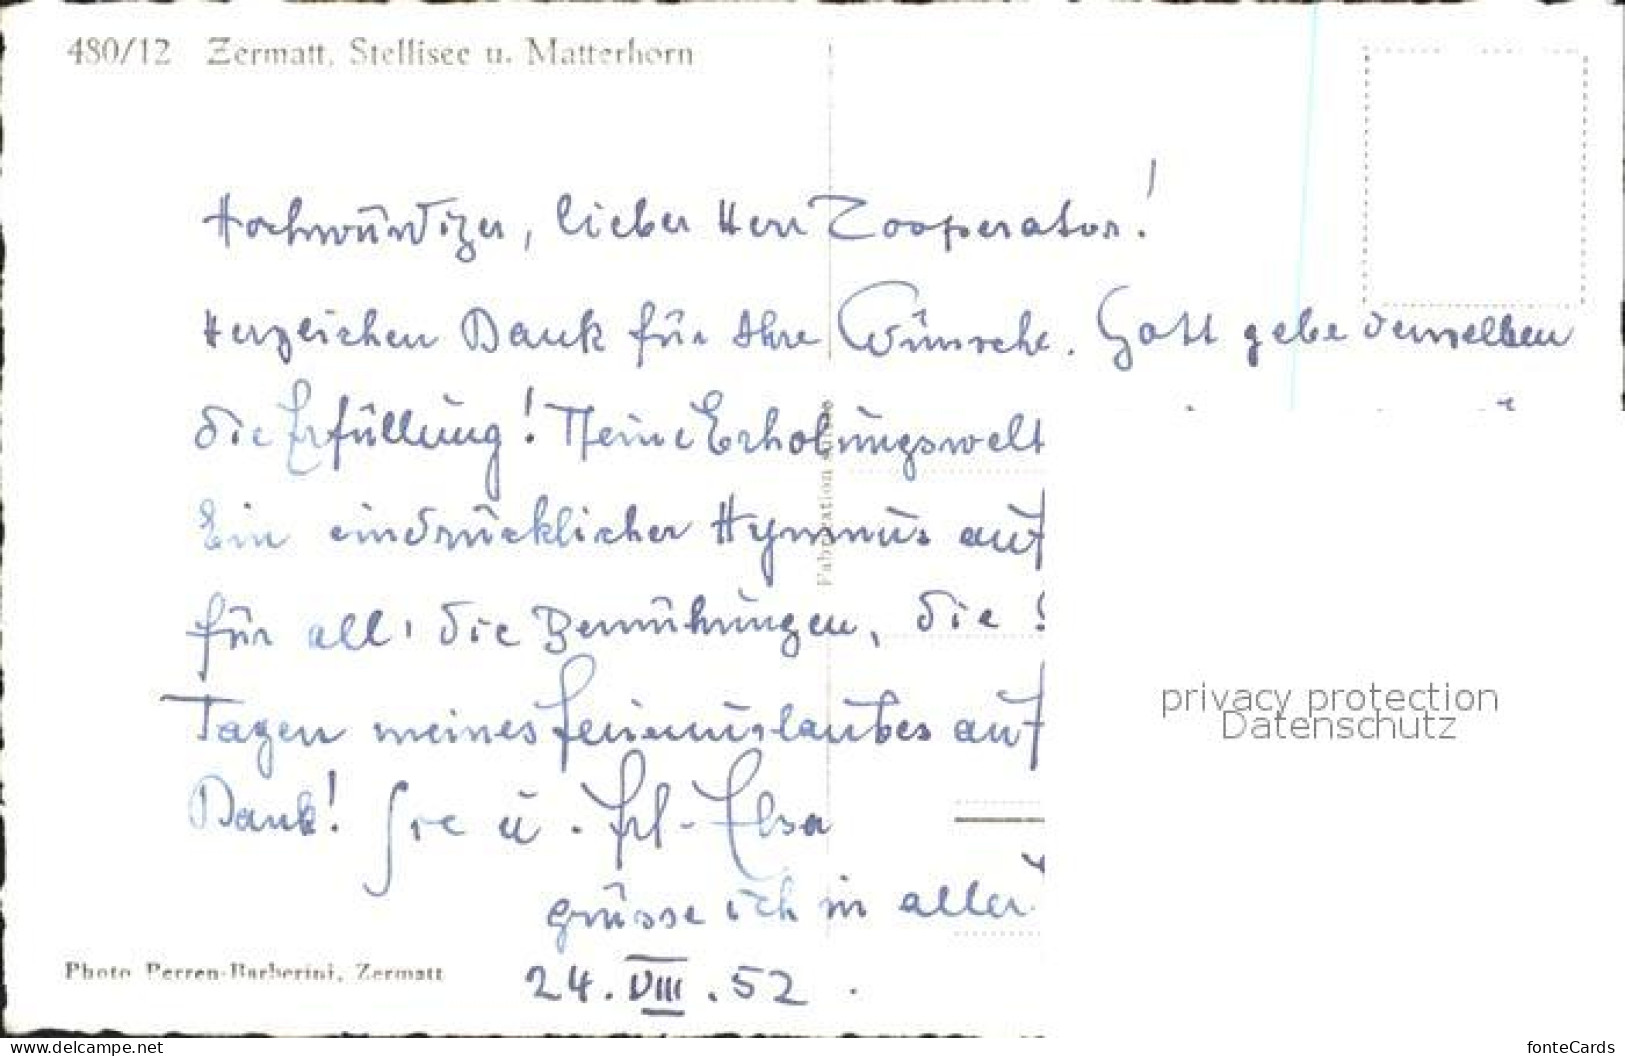 480/12 Zermatt, Stellisee u. Matterhorn
Hochwürdiger, lieber Herr Cooperator!
Herzlichen Dank für Ihre Wünsche. Gott gebe denselben
die Erfüllung! Meine Erholungswelt
Ein eindrücklicher Hymnus auf
für all' die Bemühungen, die
Tagen meines Ferienurlaubes auf
Dank! Sie u. Frl. Elsa
grüsse ich in aller
24. VIII. 52.
Fabrication Suisse
Photo Perren-Barberini, Zermatt
privacy protection
Datenschutz
www.delcampe.net
fonteCards